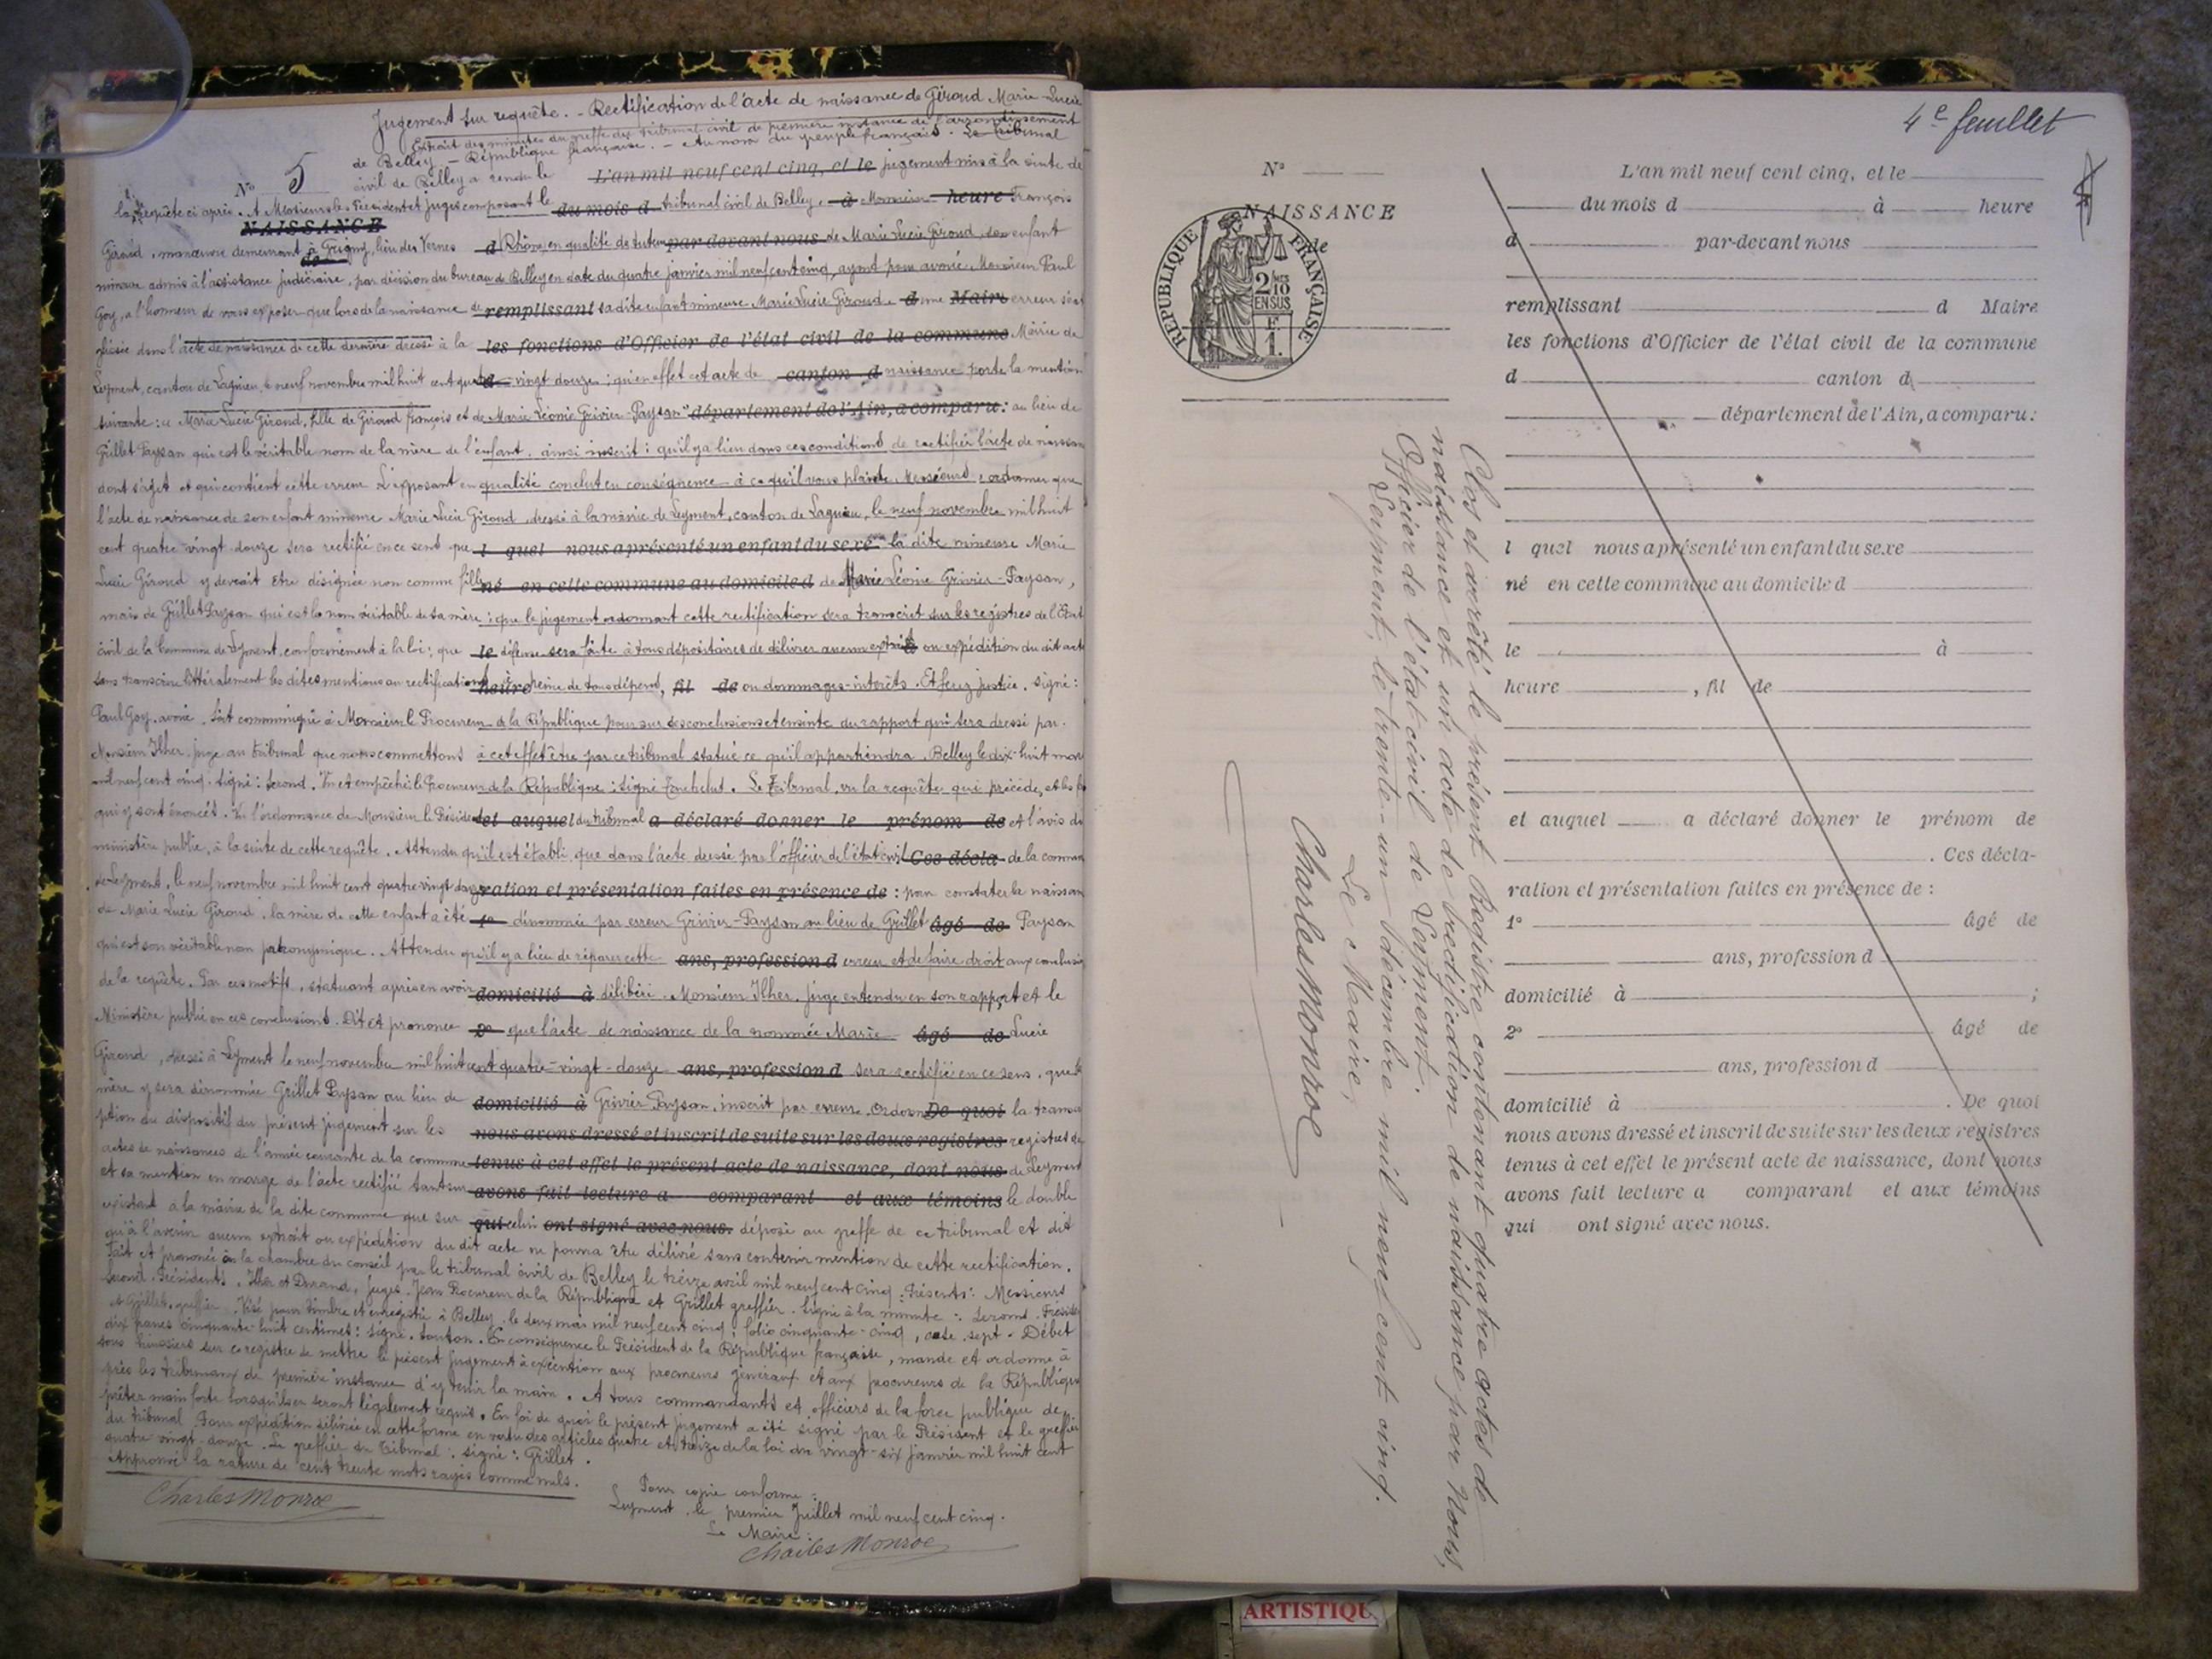 Jugement sur requête. - Rectification de l'acte de naissance de Giroud Marie-Lucie
Extrait des minutes du greffe du tribunal civil de première instance de l'arrondissement
de Belley - République française. - Au nom du peuple français. Le tribunal
civil de Belley a rendu le L'an mil neuf cent cinq, et le jugement mis à la suite de
N° 5
la requête ci après. A Messieurs les Président et juges composant le du mois d tribunal civil de Belley. à Monsieur heure François
NAISSANCE
Giroud, manœuvre demeurant à Grigny, lieu des Vernes d (Rhône) en qualité de tuteur par devant nous de Marie Lucie Giroud, son enfant
de
mineure admis à l'assistance judiciaire, par décision du bureau de Belley en date du quatre janvier mil neuf cent cinq, ayant pour avoué Monsieur Paul
Goy, a l'honneur de vous exposer que lors de la naissance de remplissant sa dite enfant mineure Marie Lucie Giroud d une Maire erreur s'est
glissée dans l'acte de naissance de cette dernière dressé à la les fonctions d'Officier de l'état civil de la commune Mairie de
Leyment, canton de Lagnieu, le neuf novembre mil huit cent quatre d vingt douze ; qu'en effet cet acte de canton d naissance porte la mention
suivante : " Marie Lucie Giroud, fille de Giroud François et de Marie Léonie Grivier-Paysan " département de l'Ain, a comparu : au lieu de
Grillet-Paysan qui est le véritable nom de la mère de l'enfant ainsi inscrit : qu'il y a lieu dans ces conditions de rectifier l'acte de naissan
dont s'agit et qui contient cette erreur. L'exposant en qualité conclut en conséquence à ce qu'il vous plaise, Messieurs, ordonner que
l'acte de naissance de son enfant mineure Marie Lucie Giroud, dressé à la mairie de Leyment, canton de Lagnieu, le neuf novembre mil huit
cent quatre vingt douze sera rectifié en ce sens que l quel nous a présenté un enfant du sexe la dite mineure Marie
Lucie Giroud y devrait être désignée non comme fille né en cette commune au domicile d de Marie Léonie Grivier-Paysan,
mais de Grillet Paysan qui est le nom véritable de sa mère : que le jugement ordonnant cette rectification sera transcrit sur les registres de l'État
civil de la Commune de Leyment, conformément à la loi ; que le défense sera faite à tous dépositaires de délivrer aucun extrait ou expédition du dit acte
sans transcrire littéralement les dites mentions ou rectifications heure peine de tous dépens, fil de ou dommages-intérêts. Et ferez justice. Signé :
Paul Goy, avoué. Soit communiqué à Monsieur le Procureur de la République pour sur ses conclusions et ensuite du rapport qui sera dressé par
Monsieur Ilher, juge au tribunal que nous commettons à cet effet être par ce tribunal statué ce qu'il appartiendra. Belley le dix-huit mars
mil neuf cent cinq. Signé : Second. Vu et empêché : le Procureur de la République : signé . Le tribunal, vu la requête qui précède, et les
qui y sont énoncés. Vu l'ordonnance de Monsieur le Président et auquel du tribunal a déclaré donner le prénom de et l'avis du
ministère public, à la suite de cette requête. Attendu qu'il est établi que dans l'acte dressé par l'officier de l'état civil Ces décla de la commune
de Leyment, le neuf novembre mil huit cent quatre vingt douze ration et présentation faites en présence de : pour constater la naissan
de Marie Lucie Giroud, la mère de cette enfant a été 1° dénommée par erreur Grivier-Paysan au lieu de Grillet âgé de Paysan
qui est son véritable nom patronymique. Attendu qu'il y a lieu de réparer cette ans, profession d erreur et de faire droit aux conclusions
de la requête. Par ces motifs, statuant après en avoir domicilié à délibéré. Monsieur Ilher, juge entendu en son rapport et le
Ministère public en ses conclusions. Dit et prononce 2° que l'acte de naissance de la nommée Marie âgé de Lucie
Giroud, dressé à Leyment le neuf novembre mil huit cent quatre-vingt-douze ans, profession d sera rectifié en ce sens, que la
mère y sera dénommée Grillet Paysan au lieu de domicilié à Grivier Paysan, inscrit par erreur. Ordonne De quoi la transcri
ption du dispositif du présent jugement sur les nous avons dressé et inscrit de suite sur les deux registres registres de
actes de naissances de l'année courante de la commune tenus à cet effet le présent acte de naissance, dont nous de Leyment
et sa mention en marge de l'acte rectifié tant sur avons fait lecture a comparant et aux témoins le double
existant à la mairie de la dite commune que sur qui celui ont signé avec nous. déposé au greffe de ce tribunal et dit
qu'à l'avenir aucun extrait ou expédition du dit acte ne pourra être délivré sans contenir mention de cette rectification.
Fait et prononcé en la chambre du conseil par le tribunal civil de Belley le treize avril mil neuf cent cinq. Présents : Messieurs
Second, Présidents, Ilher et Durand, juges. Jean Procureur de la République et Grillet greffier. Signé à la minute : Second, Présid
et Grillet, greffier. Visé pour timbre et enregistré à Belley, le deux mai mil neuf cent cinq, folio cinquante-cinq, case sept. Débet
dix francs cinquante huit centimes : signé . En conséquence le Président de la République française, mande et ordonne à
tous huissiers sur ce requis de mettre le présent jugement à exécution aux procureurs généraux et aux procureurs de la République
près les tribunaux de première instance d'y tenir la main. A tous commandants et officiers de la force publique de
prêter main forte lorsqu'ils en seront légalement requis. En foi de quoi le présent jugement a été signé par le Président et le greffier
du tribunal. Pour expédition délivrée en cette forme en vertu des articles quatre et treize de la loi du vingt-six janvier mil huit cent
quatre vingt-douze. Le greffier du tribunal : signé : Grillet.
Approuvé la rature de cent trente mots rayés comme nuls.
Charles Monroe
Pour copie conforme :
Leyment, le premier Juillet mil neuf cent cinq.
Le Maire :
Charles Monroe
4e feuillet
N°
NAISSANCE
de
RÉPUBLIQUE FRANÇAISE
2/10 EN SUS
F. 1.
L'an mil neuf cent cinq, et le
du mois d à heure
d par-devant nous
remplissant d Maire
les fonctions d'Officier de l'état civil de la commune
d canton d
département de l'Ain, a comparu :
l quel nous a présenté un enfant du sexe
né en cette commune au domicile d
le à
heure , fil de
et auquel a déclaré donner le prénom de
. Ces décla-
ration et présentation faites en présence de :
1° âgé de
ans, profession d
domicilié à ;
2° âgé de
ans, profession d
domicilié à . De quoi
nous avons dressé et inscrit de suite sur les deux registres
tenus à cet effet le présent acte de naissance, dont nous
avons fait lecture a comparant et aux témoins
qui ont signé avec nous.
Clos et arrêté le présent Registre contenant quatre actes de
naissance et un acte de rectification de naissance par Nous,
Officier de l'état civil de Leyment.
Leyment, le trente-un décembre mil neuf cent cinq.
Le Maire,
Charles Monroe
ARTISTIQU